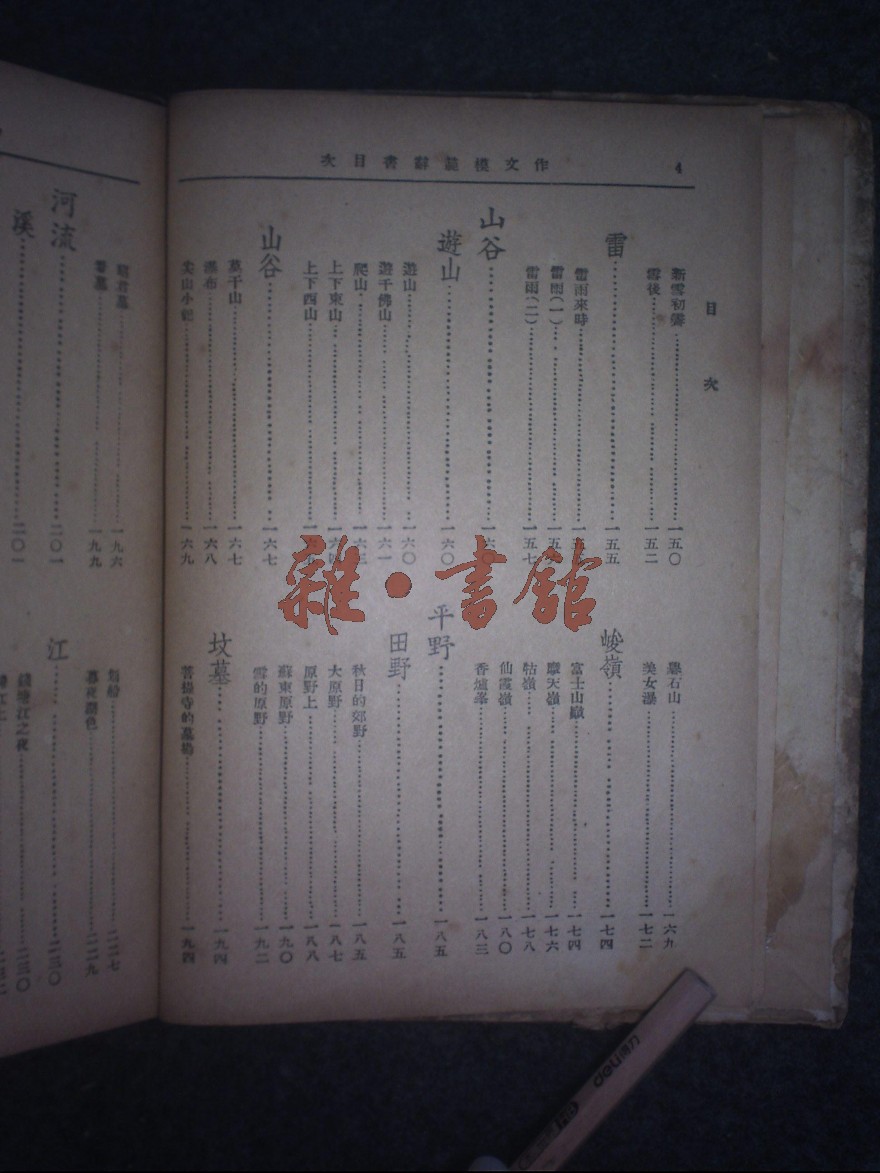 作文模範辭書目次
4
目次
新雪初霽⋯⋯一五〇
雪後⋯⋯一五二
雷⋯⋯一五五
雷雨來時
雷雨(一)
雷雨(二)⋯⋯一五七
山谷
遊山⋯⋯一六〇
遊山⋯⋯一六〇
遊千佛山⋯⋯一六一
爬山
上下東山
上下西山
山谷⋯⋯一六七
莫干山⋯⋯一六七
瀑布⋯⋯一六八
尖山小記⋯⋯一六九
石山⋯⋯一六九
美女瀑⋯⋯一七二
峻嶺⋯⋯一七四
富士山巔⋯⋯一七四
摩天嶺⋯⋯一七六
牯嶺⋯⋯一七八
仙霞嶺⋯⋯一八〇
香爐峯⋯⋯一八三
平野⋯⋯一八五
田野⋯⋯一八五
秋日的郊野⋯⋯一八五
大原野⋯⋯一八七
原野上⋯⋯一八八
蘇東原野⋯⋯一九〇
雪的原野⋯⋯一九二
坟墓⋯⋯一九四
菩提寺的墓⋯⋯一九四
墓⋯⋯一九六
墓⋯⋯一九九
河流⋯⋯二〇一
溪⋯⋯二〇一
船⋯⋯二二七
暮夜潮色⋯⋯二二九
江⋯⋯二三〇
錢塘江之夜⋯⋯二三〇
江上
雜•書館
deli得力